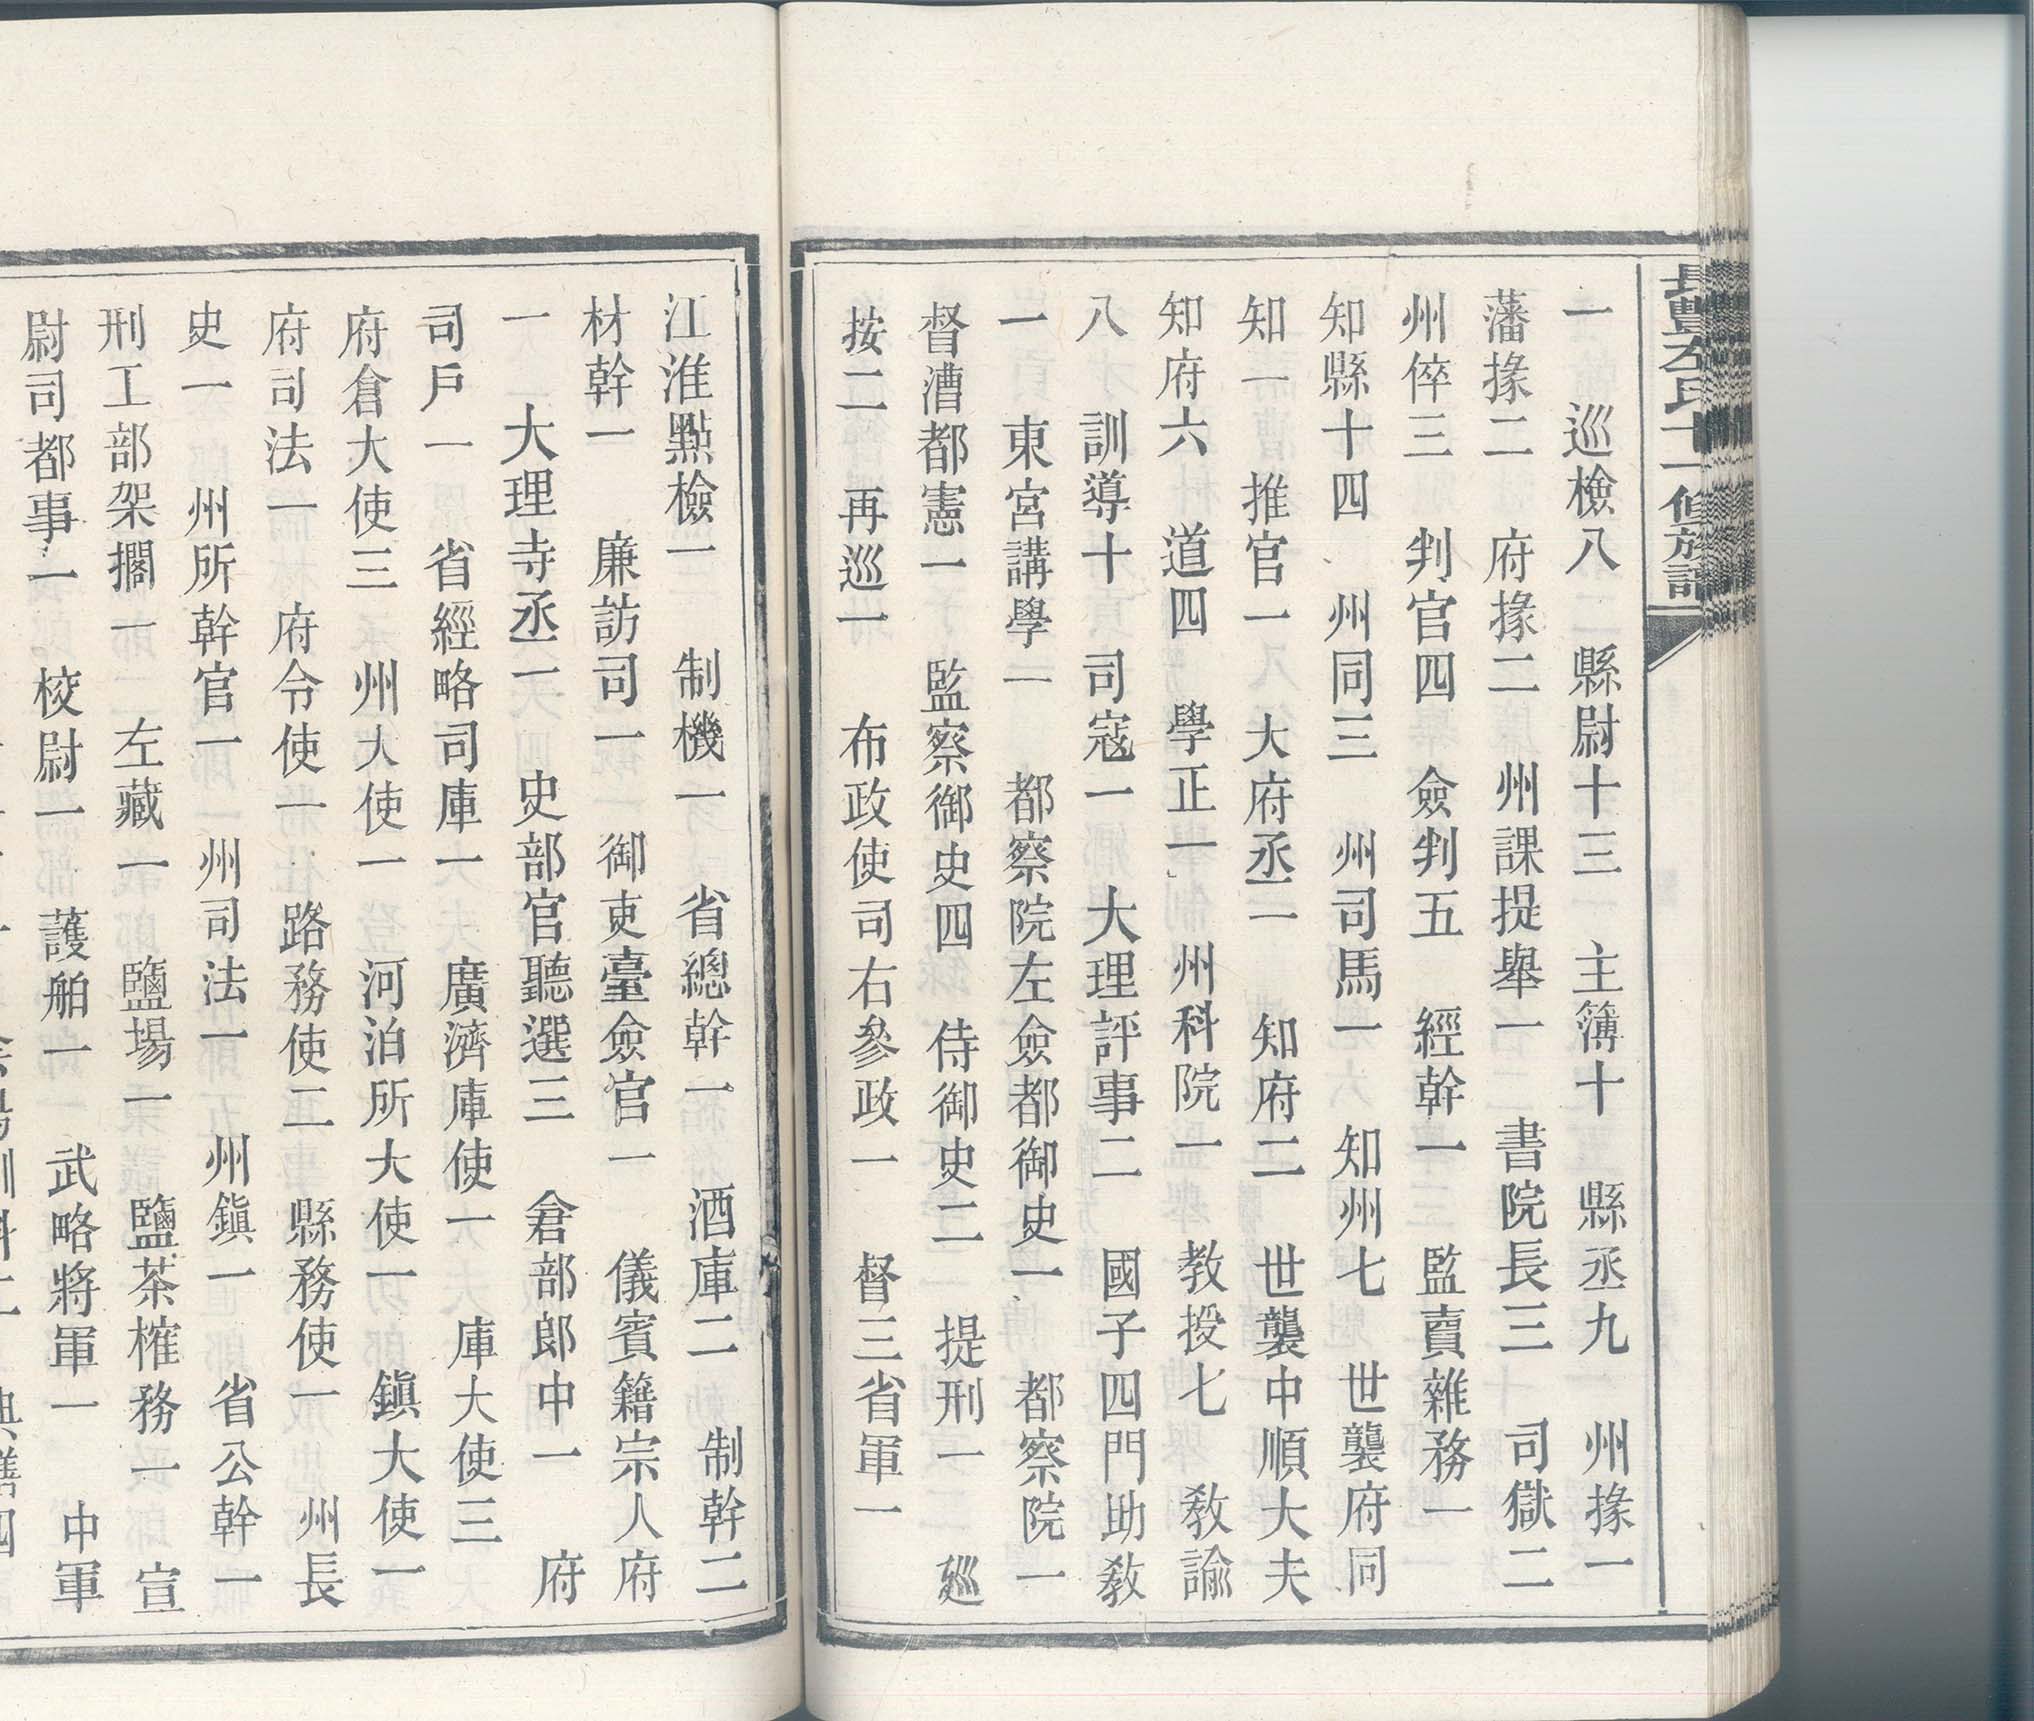 長豐左氏十一修族譜
一　巡檢八　縣尉十三　主簿十　縣丞九　州掾一
藩掾二　府掾二　州課提舉一　書院長三　司獄二
州倅三　判官四　僉判五　經幹一　監賣雜務一
知縣十四　州同三　州司馬一　知州七　世襲府同
知一　推官一　大府丞二　知府二　世襲中順大夫
知府六　道四　學正一　州科院一　教授七　教諭
八　訓導十　司寇一　大理評事二　國子四門助教
一　東宮講學一　都察院左僉都御史一　都察院一
督漕都憲一　監察御史四　侍御史二　提刑一　巡
按二　再巡一　布政使司右參政一　督三省軍一
江淮點檢一　制機一　省總幹一　酒庫二　制幹二
材幹一　廉訪司一　御吏臺僉官一　儀賓籍宗人府
一　大理寺丞一　史部官聽選三　倉部郎中一　府
司戶一　省經略司庫一　廣濟庫使一　庫大使三
府倉大使三　州大使一　河泊所大使一　鎮大使一
府司法一　府令使一　路務使二　縣務使一　州長
史一　州所幹官一　州司法一　州鎮一　省公幹一
刑工部架擱一　左藏一　鹽場一　鹽茶榷務一　宣
尉司都事一　校尉一　護舶一　武略將軍一　中軍